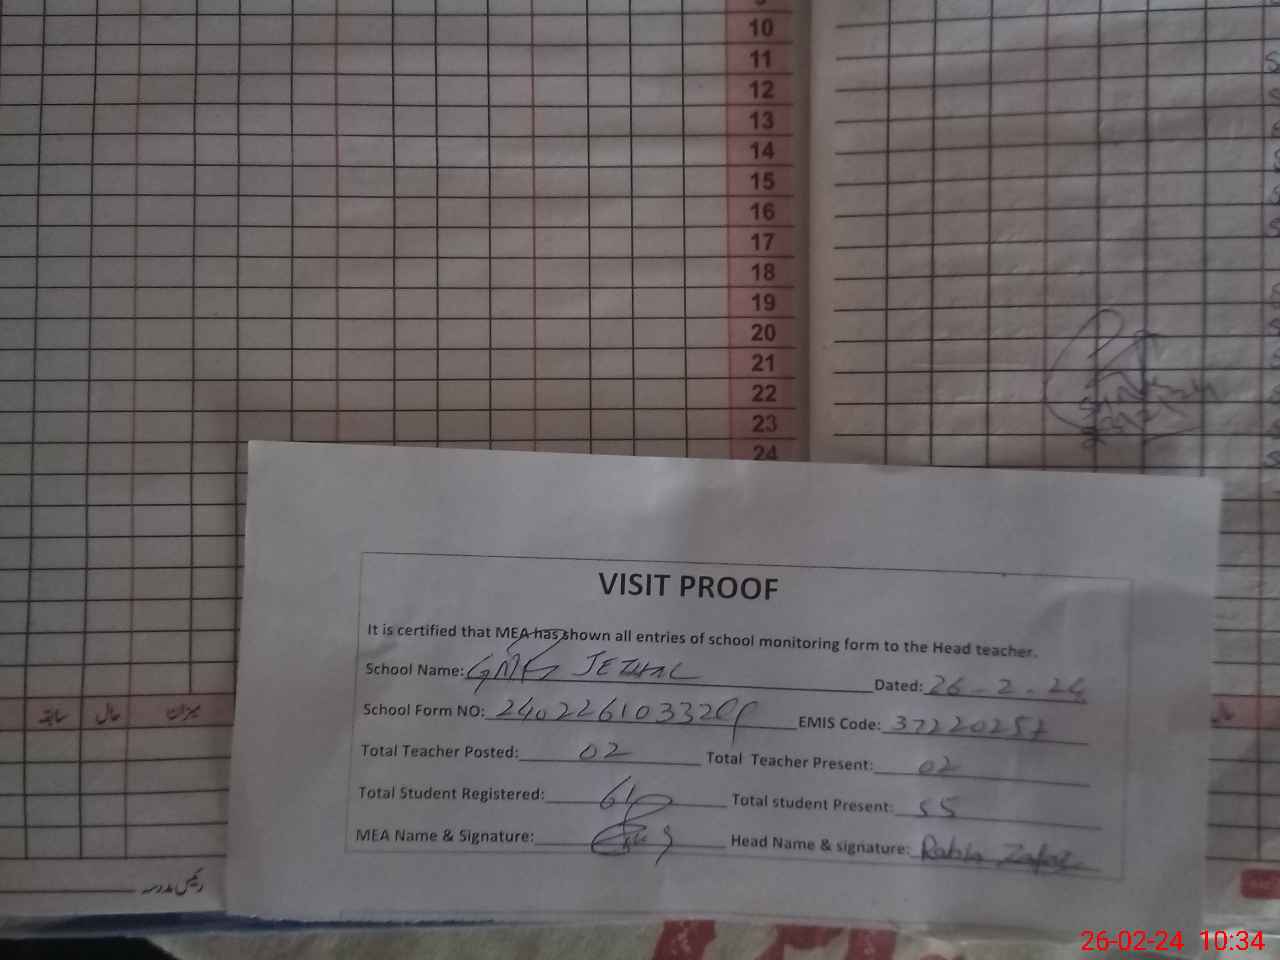 10
11
12
13
14
15
16
17
18
19
20
21
22
23
24
سابقہ حال میزان
رئیس مدرسہ
VISIT PROOF
It is certified that MEA has shown all entries of school monitoring form to the Head teacher.
School Name: GMPS JETHAL Dated: 26-2-24
School Form NO: EMIS Code: 37220257
Total Teacher Posted: 02 Total Teacher Present: 02
Total Student Registered: 61 Total student Present: 55
MEA Name & Signature: Head Name & signature: Rabia Zafar
26-02-24 10:34